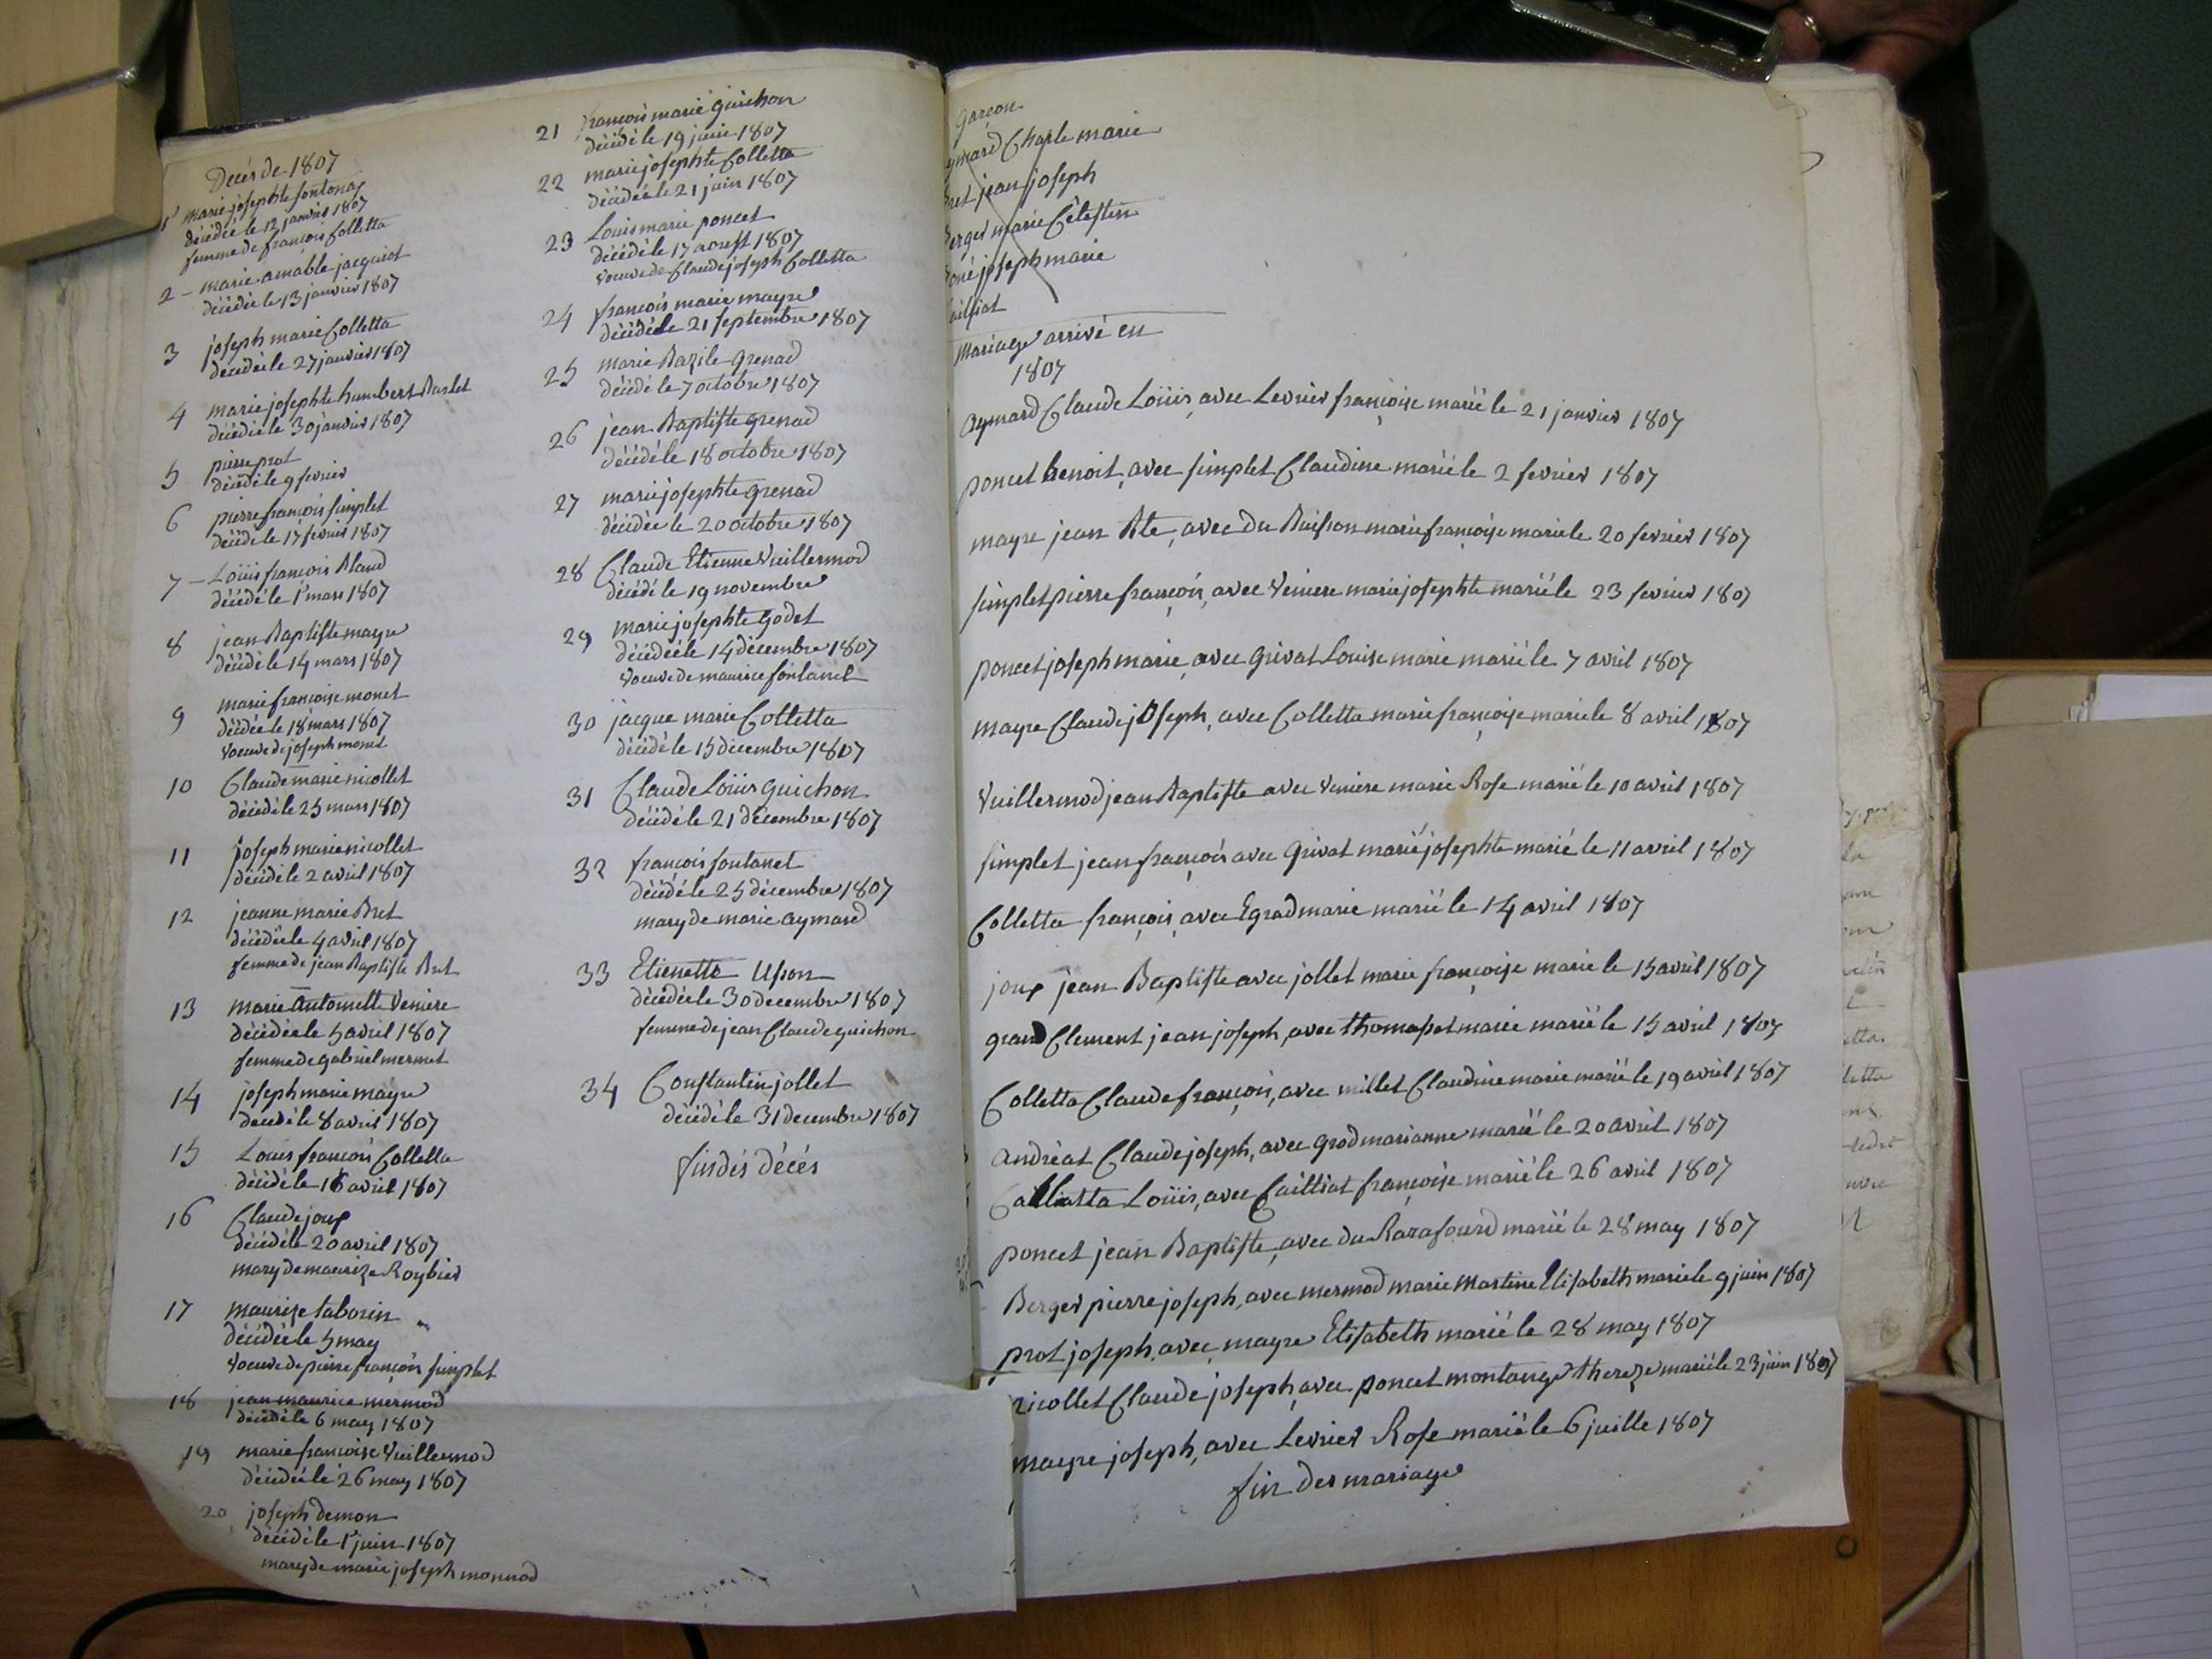 Décès de 1807
1 marie josephte fontanay
décédée le 12 janvier 1807
femme de françois Colletta
2 – marie amable jacquiot
décédée le 13 janvier 1807
3 joseph marie Colletta
décédé le 27 janvier 1807
4 marie josephte humbert Barlet
décédée le 30 janvier 1807
5 pierre prat
décédé le 9 fevrier
6 pierre françois simplet
décédé le 17 fevrier 1807
7 – Loüis françois Bland
décédé le 1r mars 1807
8 jean Baptiste mayre
décédé le 14 mars 1807
9 marie françoise monet
décédée le 18 mars 1807
voeuve de joseph monet
10 Claude marie nicollet
décédé le 25 mars 1807
11 joseph marie nicollet
décédé le 2 avril 1807
12 jeanne marie Bret
décédée le 4 avril 1807
femme de jean Baptiste Bret
13 marie Antoinette Veniere
décédée le 5 avril 1807
femme de gabriel mermet
14 joseph marie mayre
décédé le 8 avril 1807
15 Louis françois Colletta
décédé le 16 avril 1807
16 Claude joux
décédé le 20 avril 1807
mary de maurize Roybier
17 maurize taborin
décédée le 5 may
voeuve de pierre françois simplet
18 jean maurice mermod
décédé le 6 may 1807
19 marie françoise Vuillermod
décédée le 26 may 1807
20 joseph demon
décédé le 1r juin 1807
mary de marie joseph monnod
21 françois marie guichon
décédé le 19 juin 1807
22 marie josephte Colletta
décédée le 21 juin 1807
23 Louis marie poncet
décédé le 17 aoust 1807
voeuve de Claude joseph Colletta
24 françois marie mayre
décédé le 21 septembre 1807
25 marie Bazile grenad
décédé le 7 octobre 1807
26 jean Baptiste grenad
décédé le 18 octobre 1807
27 marie josephte grenad
décédée le 20 octobre 1807
28 Claude Etienne Vuillermod
décédé le 19 novembre
29 marie josephte godet
décédée le 14 décembre 1807
voeuve de maurice fontanel
30 jacque marie Colletta
décédé le 15 décembre 1807
31 Claude Loüis guichon
décédé le 21 décembre 1807
32 françois fontanet
décédé le 25 décembre 1807
mary de marie aymard
33 Etienette Upon
décédée le 30 decembre 1807
femme de jean Claude guichon
34 Constantin jollet
décédé le 31 decembre 1807
fin dés décés
garçon
ymard Charle marie
ret jean joseph
erger marie Célestin
joseph marie
Mariage arrivé en
1807
aymard Claude Loüis, avec Levrier françoise marié le 21 janvier 1807
poncet benoit, avec simplet Claudine marié le 2 fevrier 1807
mayre jean Bte, avec Du Buisson marie françoise marié le 20 fevrier 1807
simplet pierre françois, avec Veniere marie josephte marié le 23 fevrier 1807
poncet joseph marie, avec grivat Louise marie marié le 7 avril 1807
mayre Claude joseph, avec Colletta marie françoise marié le 8 avril 1807
Vuillermod jean Baptiste avec Veniere marie Rose marié le 10 avril 1807
simplet jean françois avec grivat marie josephte marié le 11 avril 1807
Colletta françois, avec Egrad marie marié le 14 avril 1807
joux jean Baptiste avec jollet marie françoise marié le 15 avril 1807
grand Clement jean joseph, avec thomasset marie marié le 15 avril 1807
Colletta Claude françois, avec millet Claudine marie marié le 19 avril 1807
andréat Claude joseph, avec grod marianne marié le 20 avril 1807
Loüis, avec Cailliat françoise marié le 26 avril 1807
poncet jean Baptiste, avec du Rafourd marié le 28 may 1807
Berger pierre joseph, avec mermod marie Martine Elisabeth marié le 9 juin 1807
prat joseph, avec mayre Elisabeth marié le 28 may 1807
nicollet Claude joseph, avec poncet montange thereze marié le 23 juin 1807
mayre joseph, avec Levrier Rose marié le 6 juille 1807
fin des mariage